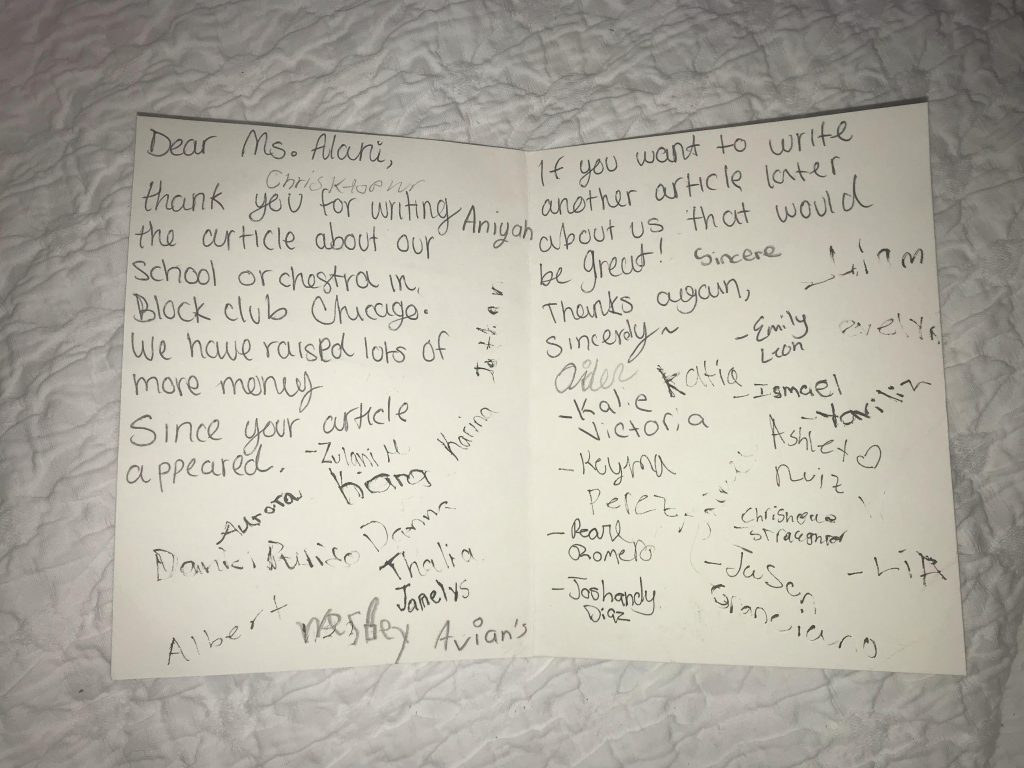 Dear Ms. Alani,
thank you for writing
Aniyah
the article about our
school orchestra in
Block club Chicago.
We have raised lots of
more money
Since your article
appeared.
-Zulani M
Karina
Kara
Aurora
Danna
Daniel
Thalia
Janelys
Albert
Avian's
If you want to write
another article later
about us that would
be great! Sincere
Thanks again,
Liam
Sincerely~
-Emily
Leon
Aiden Katia
-Ismael
-Kalie
Victoria
-Yarilin
Ashley♡
Ruiz
-Kayma
Perez
-Pearl
Romero
-Joshandy
Diaz
-Jasen
-LiA